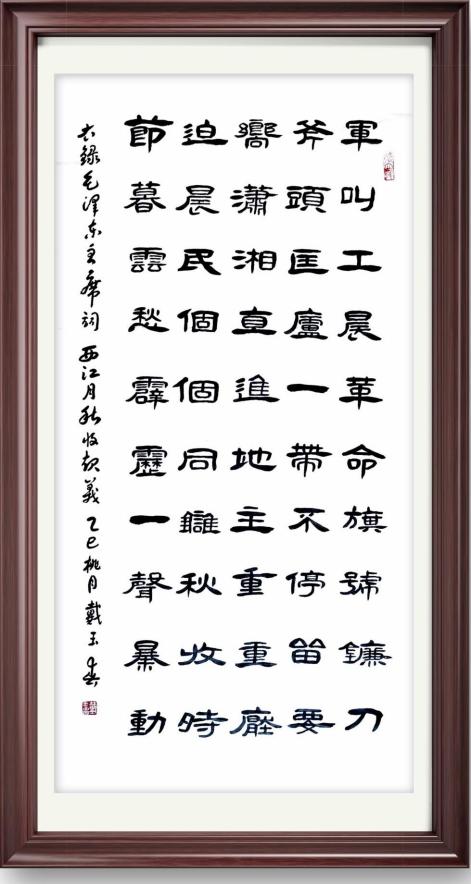 軍叫工晨革命旗號鐮刀
斧頭匡廬一帶不停笛要
嚮瀟湘直進地主重重廰
迫晨民個個同雠秋收時
節暮雲愁霹靂一聲暴動
右錄毛澤东主席词西江月秋收起義乙巳桃月戴玉春